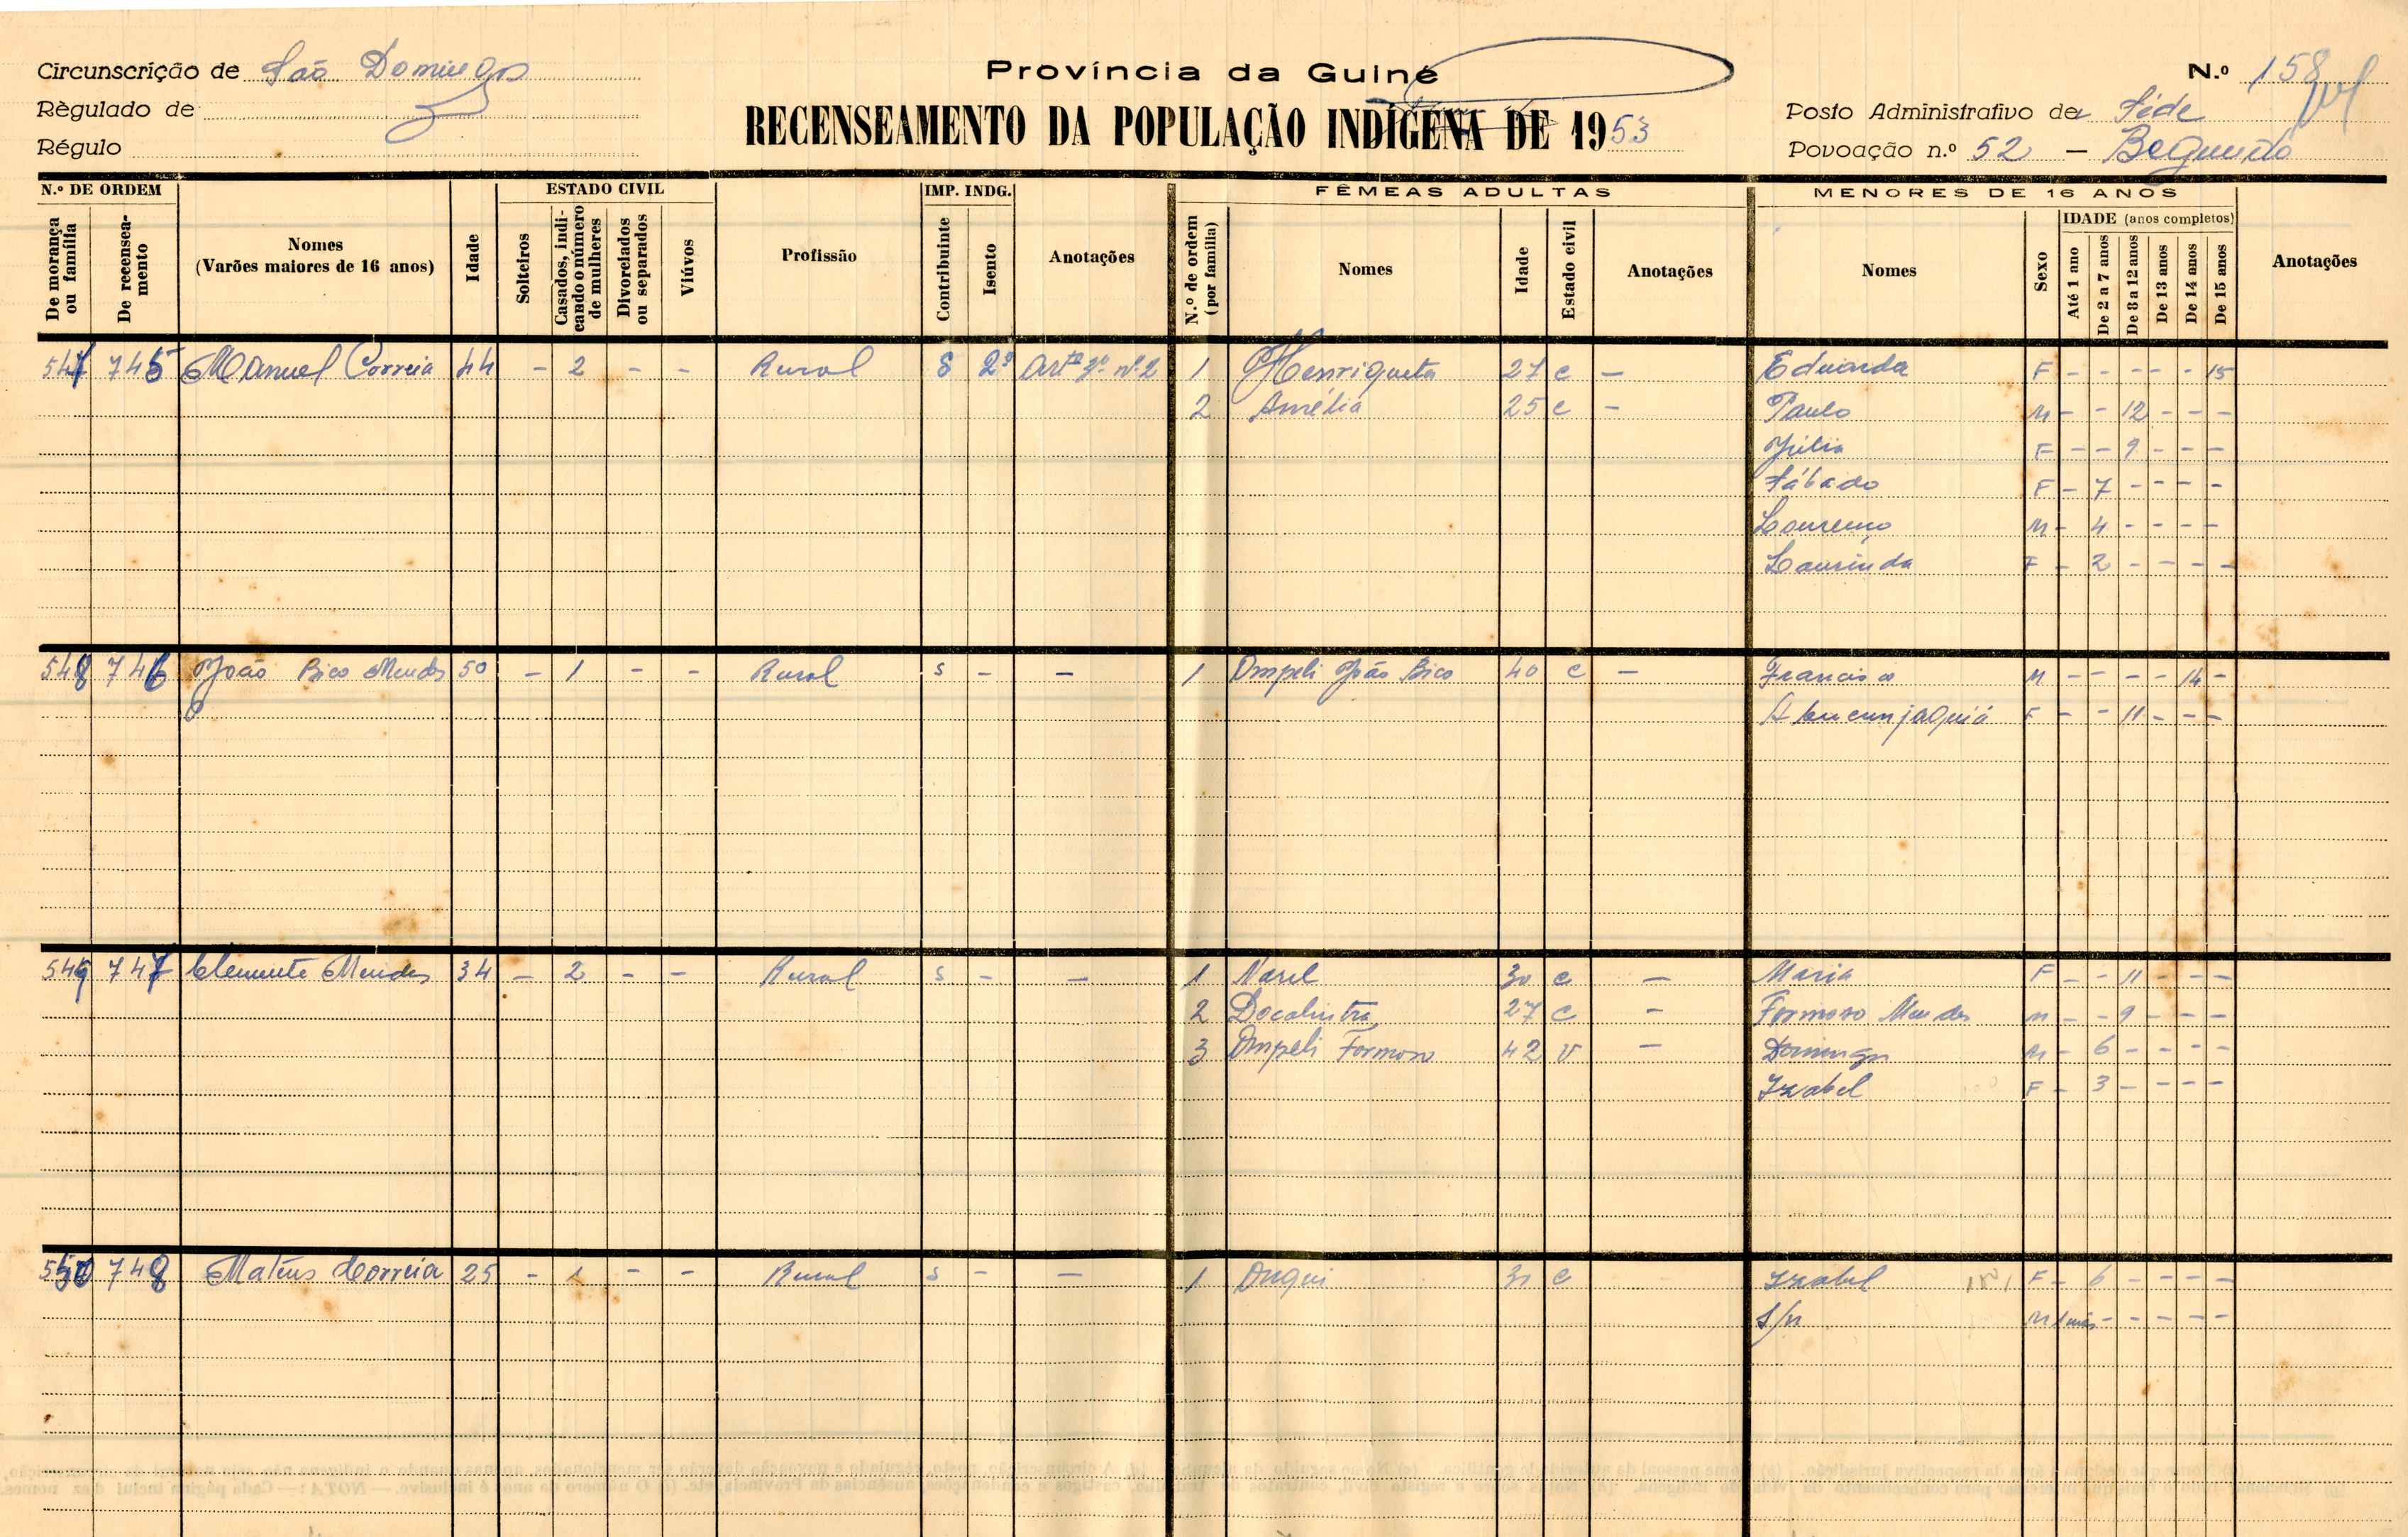 Circunscrição de São Domingos
Règulado de
Régulo
Província da Guiné
RECENSEAMENTO DA POPULAÇÃO INDÍGENA DE 1953
N.º 158
Posto Administrativo de Séde
Povoação n.º 52 -
N.º DE ORDEM
De morança ou família
De recenseamento
Nomes
(Varões maiores de 16 anos)
Idade
ESTADO CIVIL
Solteiros
Casados, indicando o número de mulheres
Divorciados ou separados
Viúvos
Profissão
IMP. INDG.
Contribuinte
Isento
Anotações
FÊMEAS ADULTAS
N.º de ordem (por família)
Nomes
Idade
Estado civil
Anotações
MENORES DE 16 ANOS
Nomes
Sexo
IDADE (anos completos)
Até 1 ano
De 2 a 7 anos
De 8 a 12 anos
De 13 anos
De 14 anos
De 15 anos
Anotações
547 745 Manuel Correia 44 - 2 - - Rural S 2º Artº 2º nº 2 1 Henriqueta 27 c - Eduarda F - - - - - 15
2 Amélia 25 c - Paulo M - - 12 - - -
Júlia F - - 9 - - -
Sábado F - 7 - - - -
Lourenço M - 4 - - - -
Laurinda F - 2 - - - -
548 746 João Bico Mendes 50 - 1 - - Rural S - - 1 Ompeli João Bico 40 c - Francisco M - - - - 14 -
F - - 11 - - -
549 747 Clemente Mendes 34 - 2 - - Rural S - - 1 30 c - Maria F - - 11 - - -
2 27 c - Formoso Mendes M - - 9 - - -
3 Ompeli Formoso 42 V - Domingos M - 6 - - - -
Izabel F - 3 - - - -
550 748 Mateus Correia 25 - 1 - - Rural S - - 1 31 c Izabel F - 6 - - - -
S/n M 1 mês - - - - -